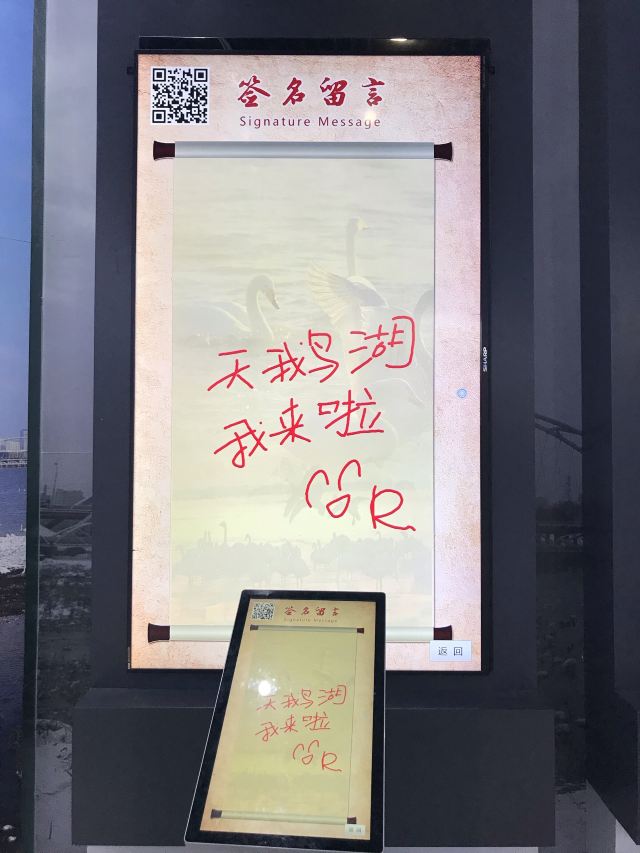 签名留言
Signature Message
天鹅湖
我来啦
SHARP
返回
签名留言
Signature Message
天鹅湖
我来啦
返回